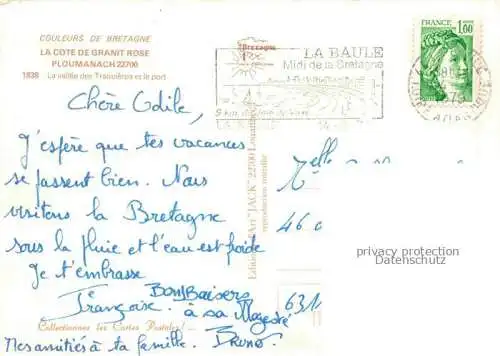 COULEURS DE BRETAGNE
LA COTE DE GRANIT ROSE
PLOUMANACH 22700
1838 La vallée des Traouiéros et le port
Bretagne
LA BAULE
Midi de la Bretagne
FRANCE
1,60
Chère Odile,
J'espère que tes vacances
se passent bien. Nous
visitons la Bretagne
sous la pluie et l'eau est froide
Je t'embrasse
Françoise
BonsBaisers
à sa Majesté
Bruno.
Mes amitiés à ta famille.
Collectionnez les Cartes Postales!
Editions d'Art "JACK" 22700 Louannec
reproduction interdite
Melle
46
631
privacy protection
Datenschutz